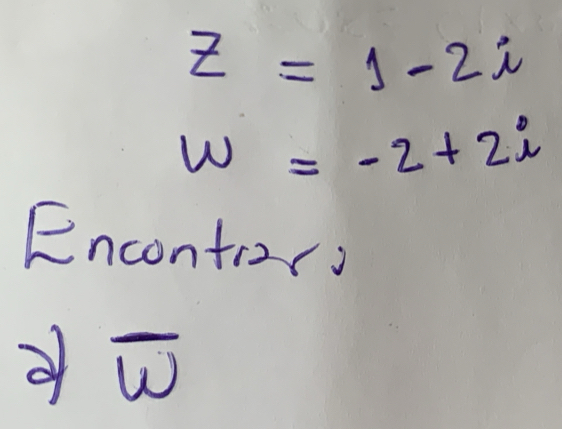 Z = 1 - 2i
W = -2 + 2i
Encontrar:
a) W̅